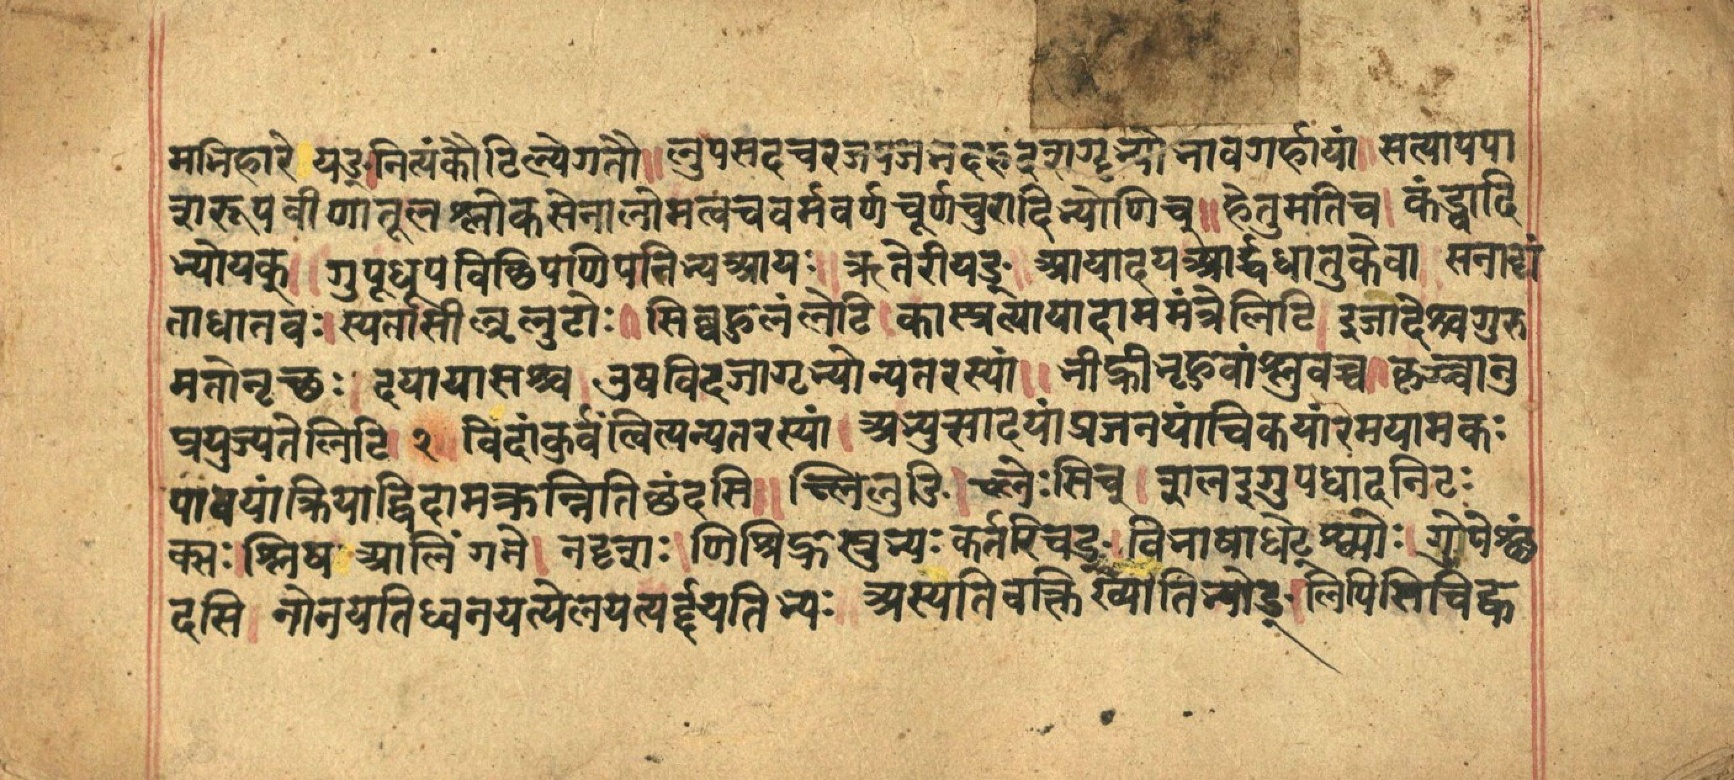 मभिहारे यङ् नित्यंकौटिल्येगतौ ॥ लुपसदचरजपजभदहदशगॄभ्यो भावगर्हायां ॥ सत्यापपा
शरूपवीणातूलश्लोकसेनालोमत्वचवर्मवर्णचूर्णचुरादिभ्योणिच् ॥ हेतुमतिच । कंड्वादि
भ्योयक् ॥ गुपूधूपविछिपणिपनिभ्यआयः ॥ ऋतेरीयङ् ॥ आयादयआर्द्धधातुकेवा ॥ सनाद्यं
ताधातवः ॥ स्यतासीलृलुटोः ॥ सिब्बहुलंलेटि । कास्प्रत्यायादाममंत्रेलिटि । इजादेश्चगुरु
मतोनृच्छः । दयायासश्च । उषविदजागृभ्योन्यतरस्यां ॥ भीह्रीभृहुवांश्लुवच्च ॥ कृञ्चानु
प्रयुज्यतेलिटि । २ । विदांकुर्वंत्वित्यन्यतरस्यां । अभ्युत्सादयांप्रजनयांचिकयांरमयामकः
पावयांक्रियाद्विदामक्रन्नितिछंदसि ॥ च्लिलुङि । च्लेः सिच् । शलइगुपधादनिटः
क्सः । श्लिष आलिंगने । नदृशः । णिश्रिद्रुस्रुभ्यः कर्तरिचङ् । विभाषाधेट्श्व्योः । गुपेश्छं
दसि । नोनयतिध्वनयत्येलयत्यर्द्दयतिभ्यः ॥ अस्यतिवक्तिख्यातिभ्योङ् । लिपिसिचिह्व